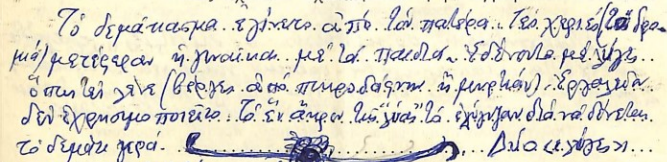 Τό δεμάτιασμα ἐγίνετο ἀπό τόν πατέρα. Τές χεριές (τά δρα-
μιά) μετέφεραν ἡ γυναίκα μέ τά παιδιά. Ἐδένοντο μέ λύγες..
ὅπως τές λένε (βέργες ἀπό πικροδάφνη ἤ μυρτιάν). Ἐργαλεῖον
δέν ἐχρησιμοποιεῖτο. Τό ἕν ἄκρον τῆς "λύας" τό ἐλύγιζαν διά νά δένεται
τό δεμάτι γερά.